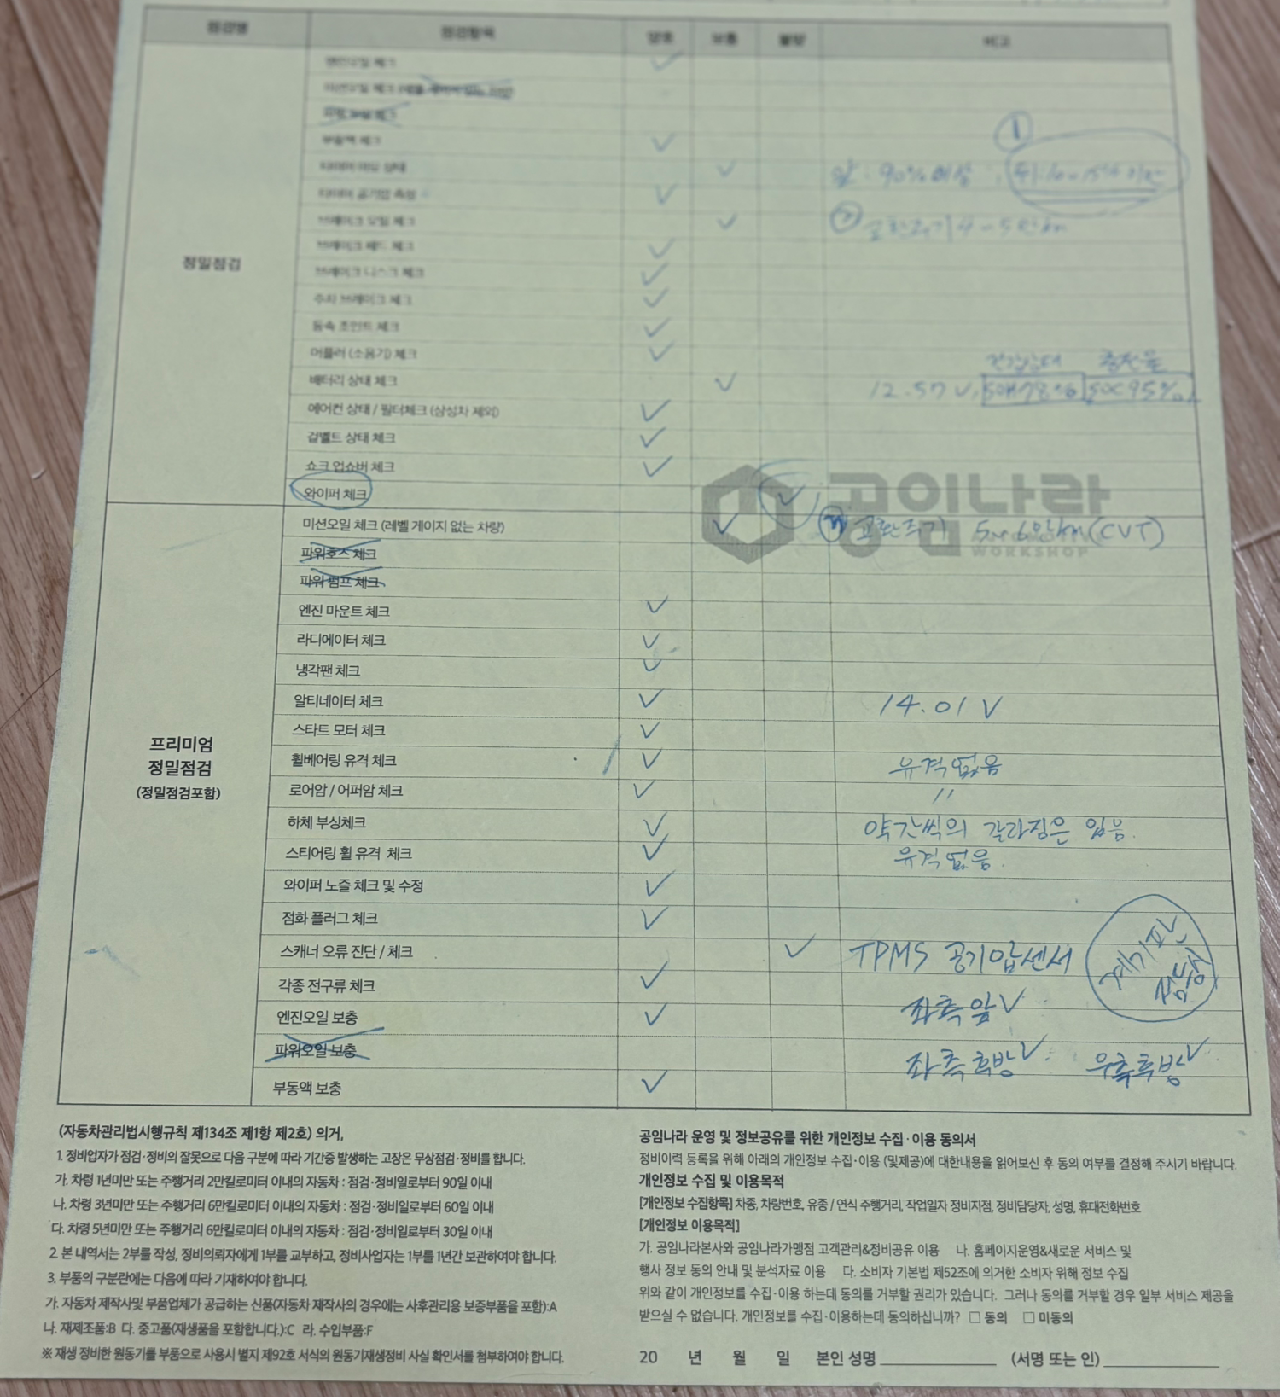 점검명 점검항목 양호 보통 불량 비고
정밀점검
엔진오일 체크 ✓
미션오일 체크
부동액 체크 ✓
타이어 마모 상태 ✓ 앞 : 90% 이상, ①
타이어 공기압 측정 ✓
브레이크 오일 체크 ✓ ② 교환주기 4~5만km
브레이크 패드 체크 ✓
브레이크 디스크 체크 ✓
주차 브레이크 체크 ✓
등속 조인트 체크 ✓
머플러 (소음기) 체크 ✓
건강상태 충전율
배터리 상태 체크 ✓ 12.57 V, SOH 78% SOC 95%
에어컨 상태 / 필터체크 (삼성차 제외) ✓
겉벨트 상태 체크 ✓
쇼크 업쇼버 체크 ✓
와이퍼 체크 ✓
공임나라
WORKSHOP
프리미엄
정밀점검
(정밀점검포함)
미션오일 체크 (레벨 게이지 없는 차량) ✓ 교환주기 5~6만km (CVT)
파워호스 체크
파워 펌프 체크
엔진 마운트 체크 ✓
라디에이터 체크 ✓
냉각팬 체크 ✓
알티네이터 체크 ✓ 14.01 V
스타트 모터 체크 ✓
휠베어링 유격 체크 ✓ 유격없음
로어암 / 어퍼암 체크 ✓ 〃
하체 부싱체크 ✓ 약간씩의 갈라짐은 있음.
스티어링 휠 유격 체크 ✓ 유격없음.
와이퍼 노즐 체크 및 수정 ✓
점화 플러그 체크 ✓
스캐너 오류 진단 / 체크 ✓ TPMS 공기압센서 계기판 점등
각종 전구류 체크 ✓
엔진오일 보충 ✓ 좌측앞 ✓
파워오일 보충 좌측후방 ✓ 우측후방 ✓
부동액 보충 ✓
(자동차관리법시행규칙 제134조 제1항 제2호) 의거,
1. 정비업자가 점검·정비의 잘못으로 다음 구분에 따라 기간중 발생하는 고장은 무상점검·정비를 합니다.
가. 차령 1년미만 또는 주행거리 2만킬로미터 이내의 자동차 : 점검·정비일로부터 90일 이내
나. 차령 3년미만 또는 주행거리 6만킬로미터 이내의 자동차 : 점검·정비일로부터 60일 이내
다. 차령 5년미만 또는 주행거리 6만킬로미터 이내의 자동차 : 점검·정비일로부터 30일 이내
2. 본 내역서는 2부를 작성, 정비의뢰자에게 1부를 교부하고, 정비사업자는 1부를 1년간 보관하여야 합니다.
3. 부품의 구분란에는 다음에 따라 기재하여야 합니다.
가. 자동차 제작사및 부품업체가 공급하는 신품(자동차 제작사의 경우에는 사후관리용 보증부품을 포함):A
나. 재제조품:B 다. 중고품(재생품을 포함합니다.):C 라. 수입부품:F
※ 재생 정비한 원동기를 부품으로 사용시 별지 제92호 서식의 원동기재생정비 사실 확인서를 첨부하여야 합니다.
공임나라 운영 및 정보공유를 위한 개인정보 수집·이용 동의서
정비이력 등록을 위해 아래의 개인정보 수집·이용 (및제공)에 대한내용을 읽어보신 후 동의 여부를 결정해 주시기 바랍니다.
개인정보 수집 및 이용목적
[개인정보 수집항목] 차종, 차량번호, 유종 / 연식 수행거리, 작업일자 정비지점, 정비담당자, 성명, 휴대전화번호
[개인정보 이용목적]
가. 공임나라본사와 공임나라가맹점 고객관리&정비공유 이용 나. 홈페이지운영&새로운 서비스 및
행사 정보 동의 안내 및 분석자료 이용 다. 소비자 기본법 제52조에 의거한 소비자 위해 정보 수집
위와 같이 개인정보를 수집·이용 하는데 동의를 거부할 권리가 있습니다. 그러나 동의를 거부할 경우 일부 서비스 제공을
받으실 수 없습니다. 개인정보를 수집·이용하는데 동의하십니까? □ 동의 □ 미동의
20 년 월 일 본인 성명 (서명 또는 인)